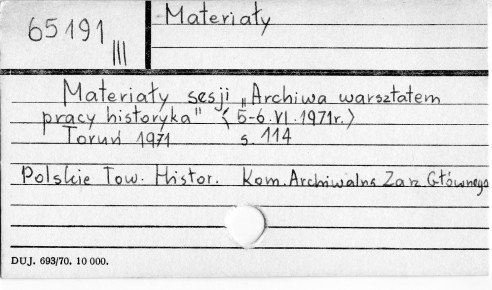 65191
III
Materiały
Materiały sesji „Archiwa warsztatem
pracy historyka" (5-6.VI.1971r.)
Toruń 1971 s. 114
Polskie Tow. Histor. Kom. Archiwalna Zarz. Głównego
DUJ. 693/70. 10 000.